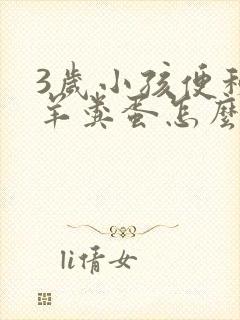 3歲小孩便
羊糞蛋怎麼
li倩女